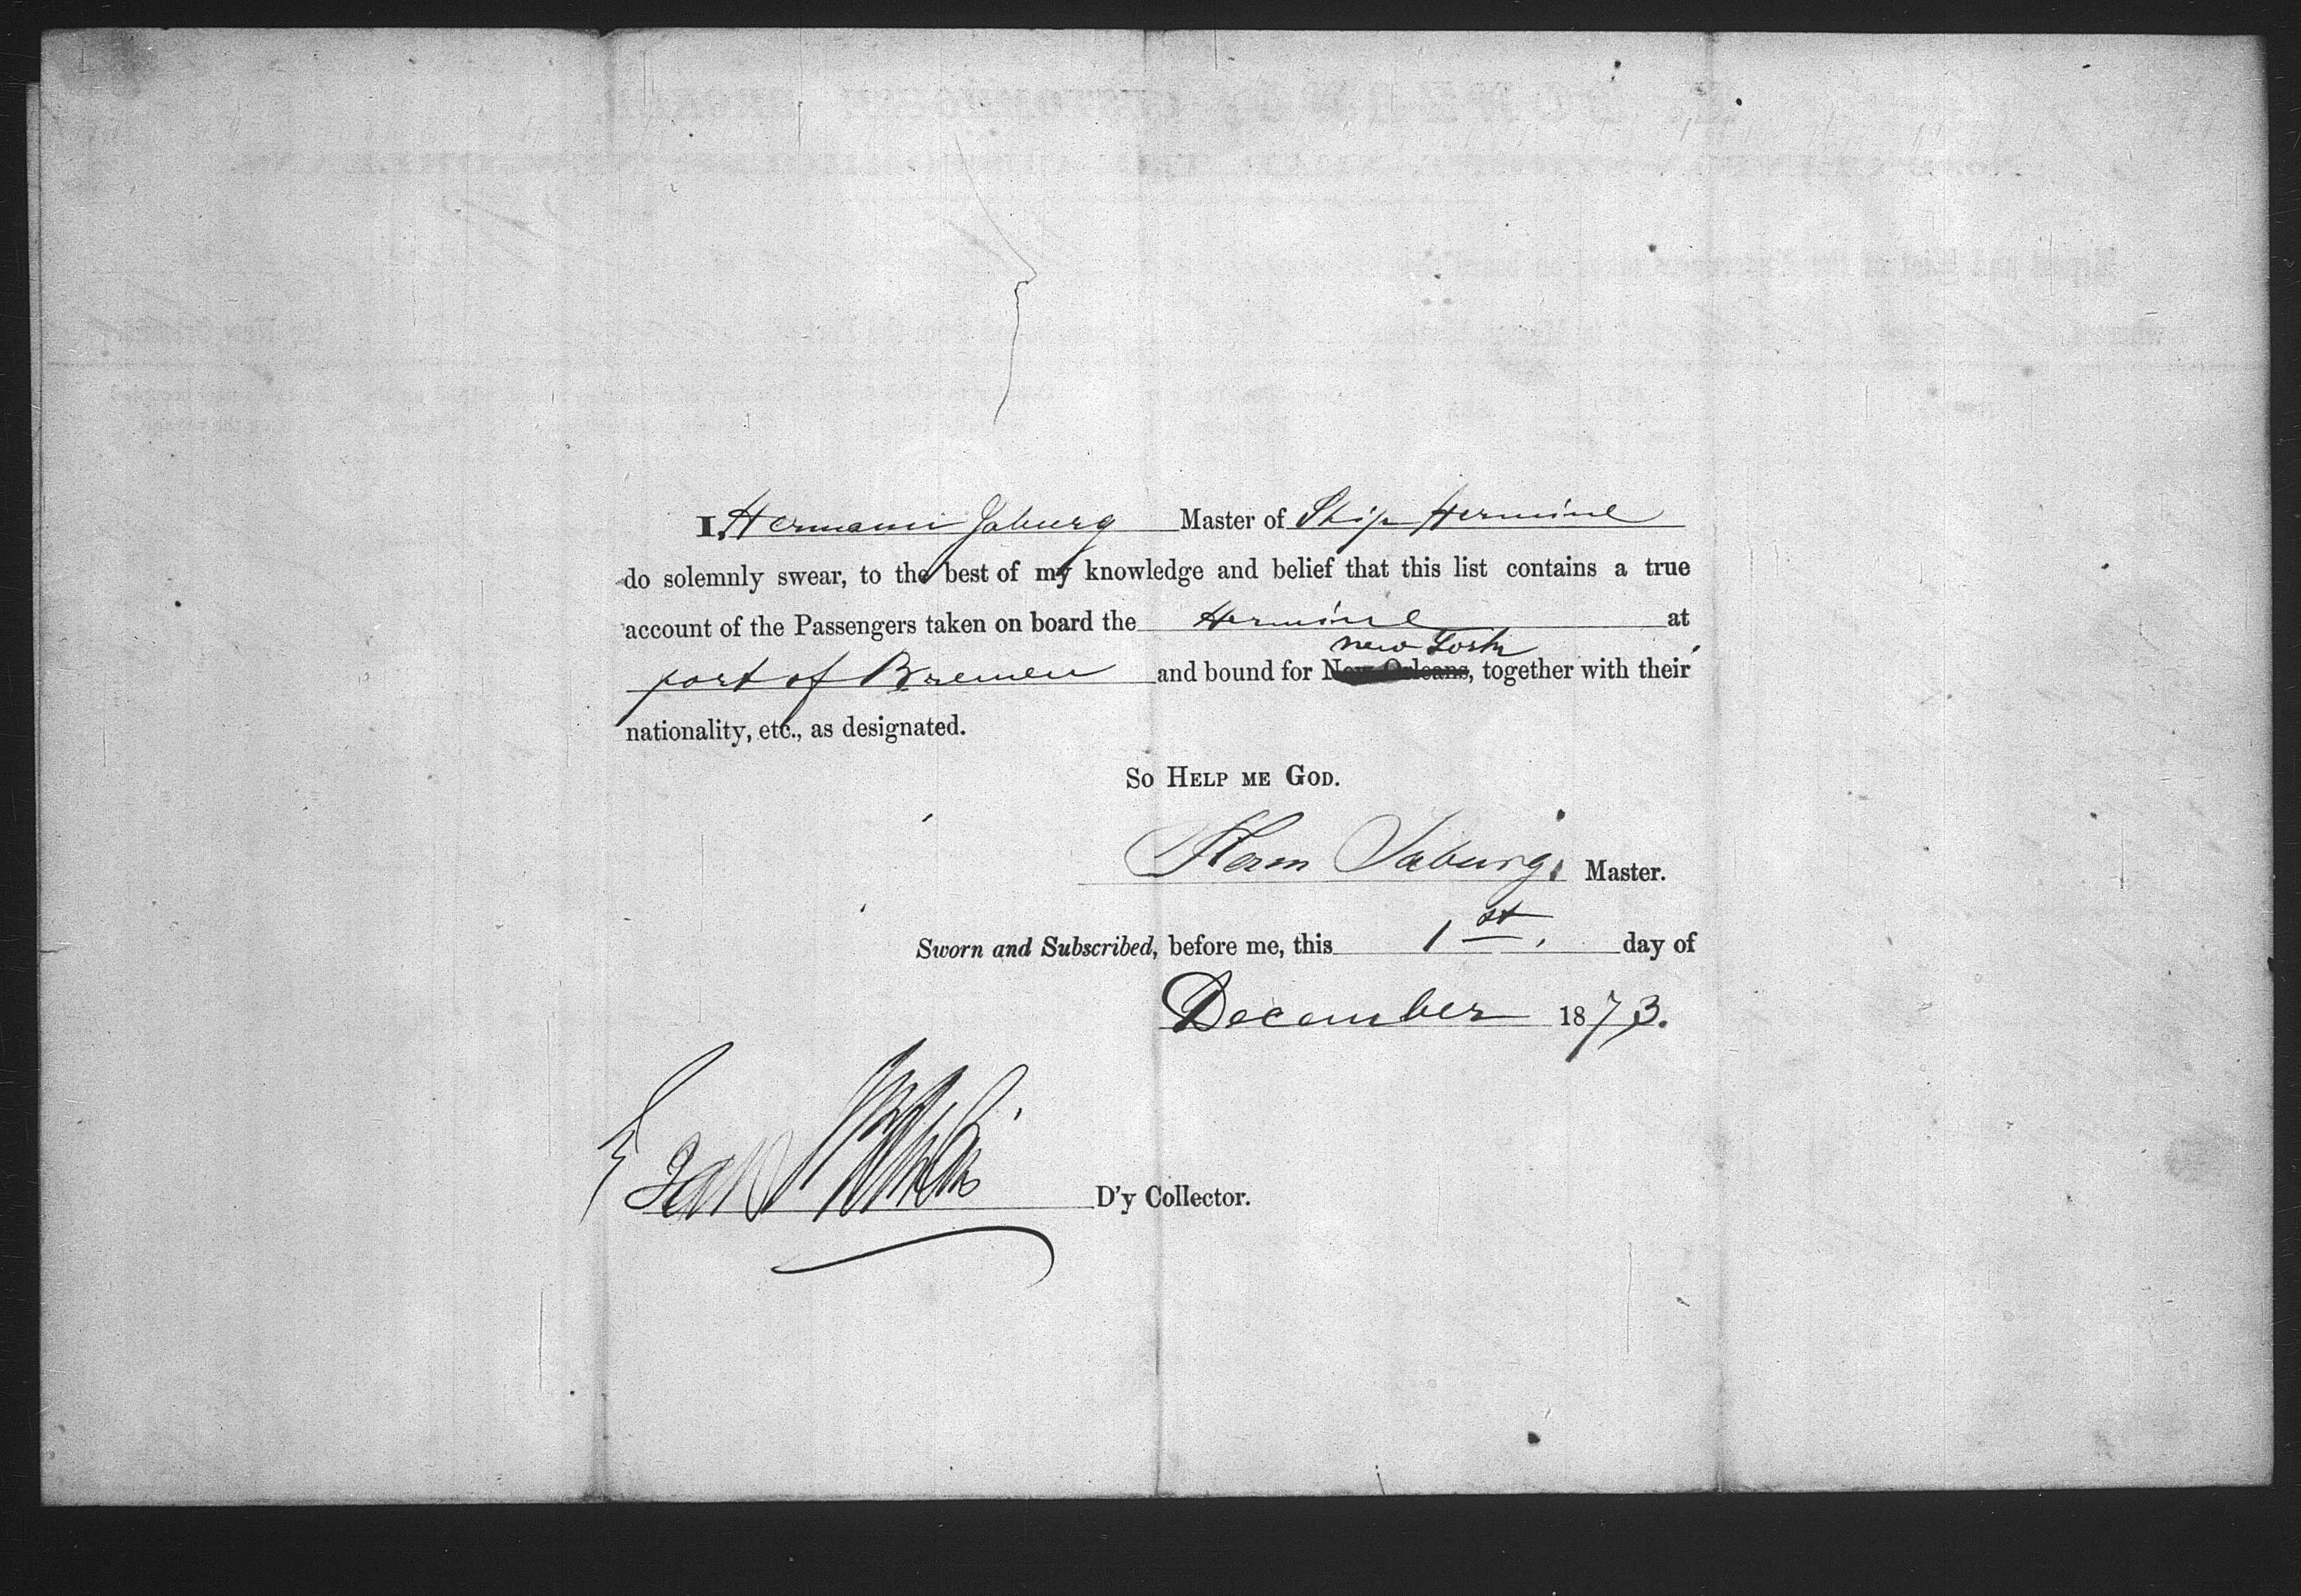 I, Hermann Jaburg Master of Ship Hermine
do solemnly swear, to the best of my knowledge and belief that this list contains a true
account of the Passengers taken on board the Hermine at
new York
port of Bremen and bound for New Orleans, together with their
nationality, etc., as designated.
So Help me God.
Herm Jaburg, Master.
Sworn and Subscribed, before me, this 1st. day of
December 1873.
D'y Collector.